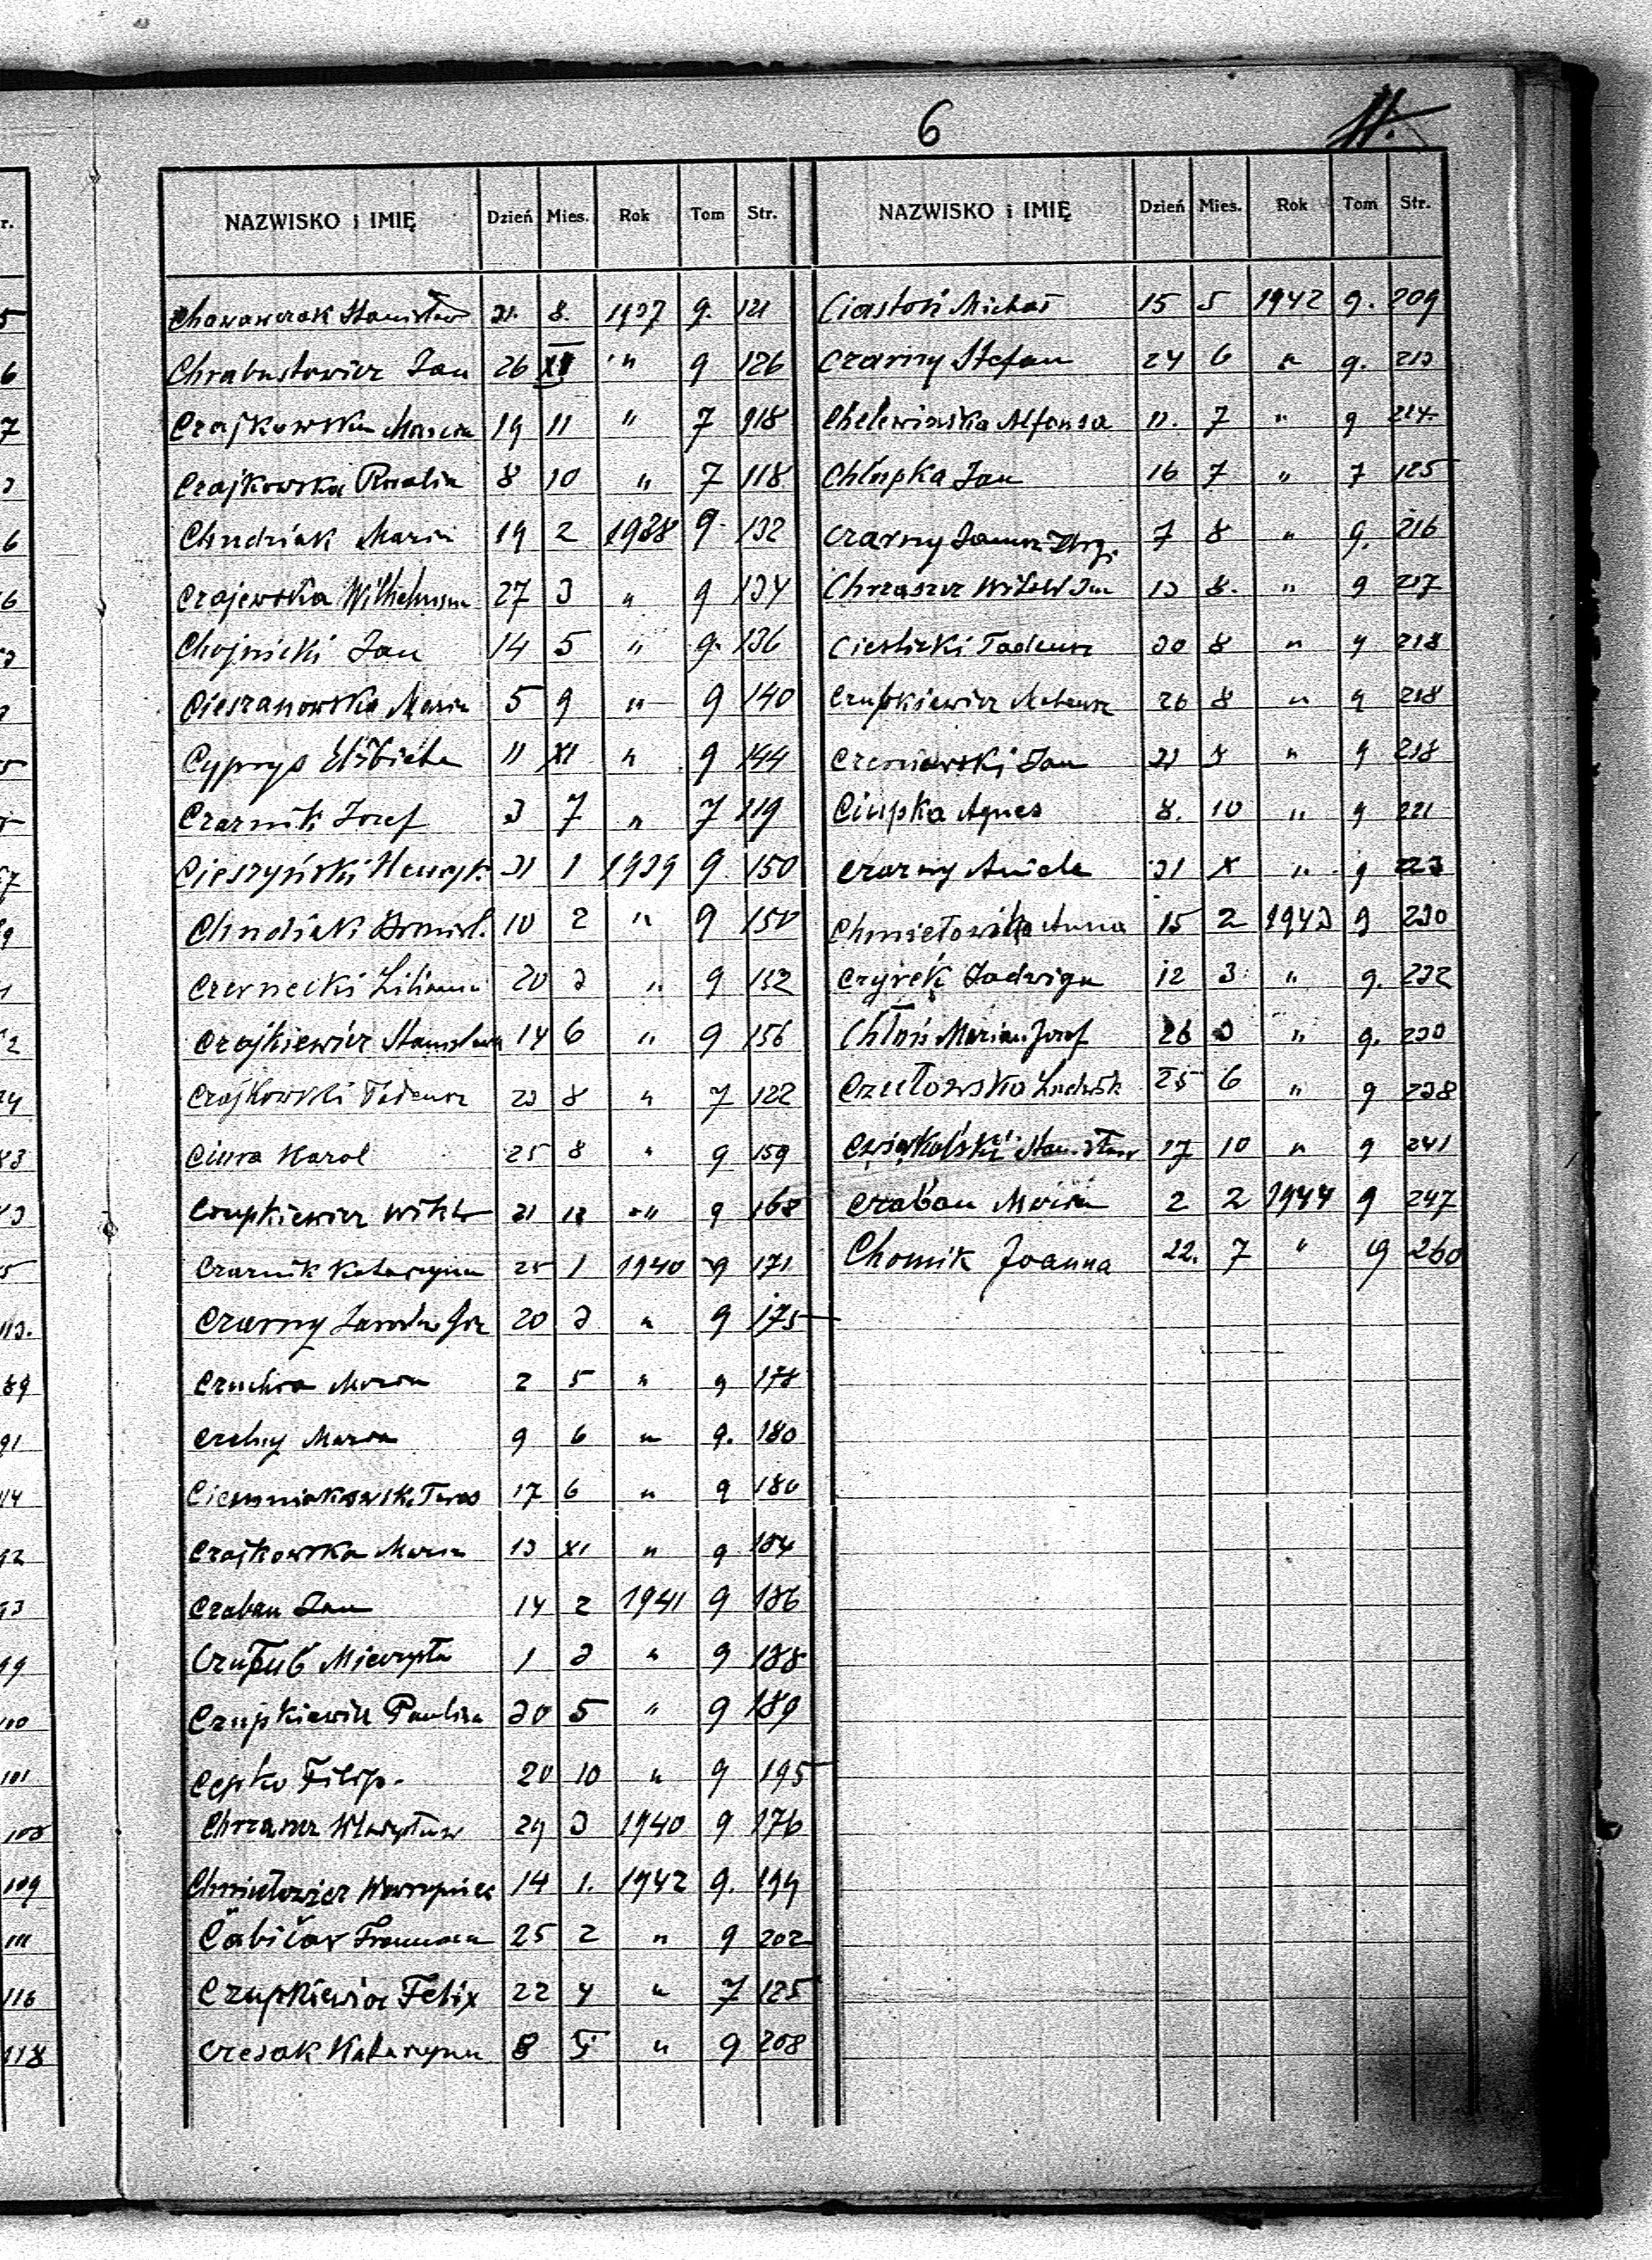 6
11.
NAZWISKO i IMIĘ Dzień Mies. Rok Tom Str.
Chowawczak Stanisław 31. 8. 1937 9. 121
Chrabustowicz Jan 26 XII " 9 126
Czajkowska Maria 19 11 " 7 118
Czajkowska Rozalia 8 10 " 7 118
Chudziak Maria 19 2 1938 9. 132
Czajewska Wilhelmina 27 3 " 9 134
Chojnicki Jan 14 5 " 9. 136
Cieszanowska Maria 5 9 " 9 140
Cyprys Elżbieta 11 XI " 9 144
Czarnik Józef 3 7 " 7 119
Cieszyński Henryk 31 1 1939 9 150
Chudziak Bronisł. 10 2 " 9 150
Czernecki Liliana 20 3 " 9 152
Czajkiewicz Stanisława 14 6 " 9 156
Czajkowski Tadeusz 23 8 " 7 122
Ciura Karol 25 8 " 9 159
Czupkiewicz Wiktor 31 12 " 9 168
Czarnik Katarzyna 25 1 1940 9 171
Czarny Jarosław 20 3 " 9 175
Czuchra Maria 2 5 " 9 178
Czelny Maria 9 6 " 9. 180
17 6 " 9 180
Czajkowska Maria 13 XI " 9 184
Czaban Jan 14 2 1941 9 186
Mieczysła 1 3 " 9 188
Czupkiewicz Paulina 30 5 " 9 189
Cepko Filip. 20 10 " 9 195
Chrzaszcz Władysław 29 3 1940 9 176
Chmielowicz Wawrzyniec 14 1. 1942 9. 199
Čabičar Franciszka 25 2 " 9 202
Czupkiewicz Felix 22 4 " 7 125
Czesak Katarzyna 8 5 " 9 208
NAZWISKO i IMIĘ Dzień Mies. Rok Tom Str.
Ciastoń Michał 15 5 1942 9. 209
Czarny Stefan 24 6 " 9. 213
Chelewińska Alfonsa 11. 7 " 9 214
Chłopka Jan 16 7 " 7 125
Czarny Janusz 7 8 " 9. 216
Chrzaszcz Witold Jan 13 8. " 9 217
Cieslicki Tadeusz 30 8 " 9 218
Czupkiewicz Mateusz 26 8 " 9 218
Czerniawski Jan 31 8 " 9 218
Ciupka Agnes 8. 10 " 9 221
Czarny Aniela 31 X " 9 223
Chmielowska Anna 15 2 1943 9 230
Czyrek Jadwiga 12 3 " 9. 232
Chłoń Marian Józef 26 3 " 9. 230
Czułowska Ludwik 25 6 " 9 238
Stanisław 17 10 " 9 241
Czaban Maria 2 2 1944 9 247
Chomik Joanna 22. 7 " 9 260